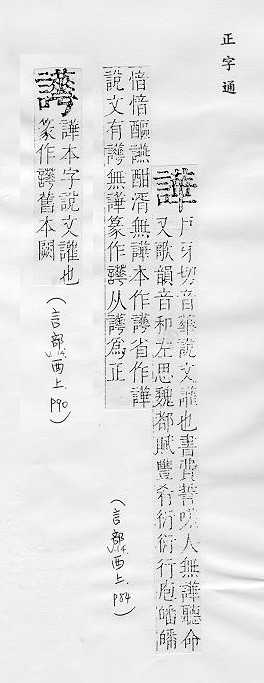 正字通
譁
戶牙切音華說文讙也書費誓嗟人無譁聽命
又歌韻音和左思魏都賦豐肴衍衍行庖皤皤
愔愔醧讌酣湑無譁本作省作譁
說文有無譁篆作从為正
(言部酉上 P84)
譁本字說文讙也
篆作舊本闕
(言部酉上 P90)